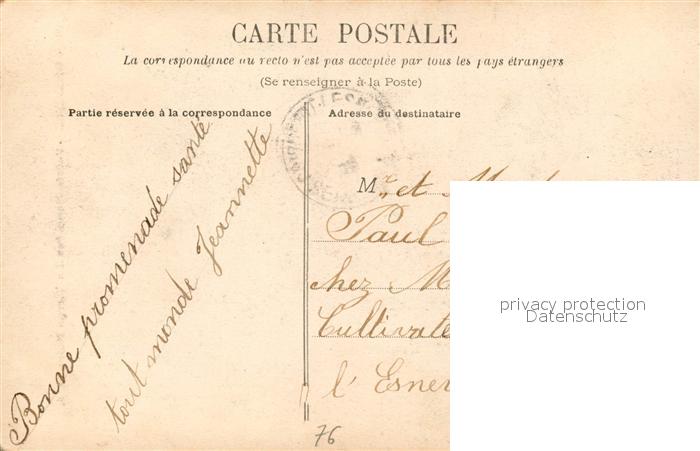 CARTE POSTALE
La correspondance au recto n'est pas acceptée par tous les pays étrangers
(Se renseigner à la Poste)
Partie réservée à la correspondance
Adresse du destinataire
Bonne promenade santé
tout monde Jeannette
Mr et
Paul
chez M
Cultivate
l'Esner
76
privacy protection
Datenschutz